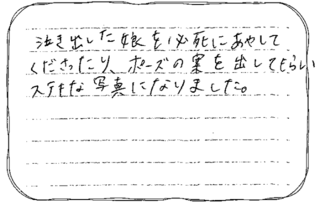 泣き出した娘を必死にあやして
くださったり、ポーズの案を出してもらい
ステキな写真になりました。